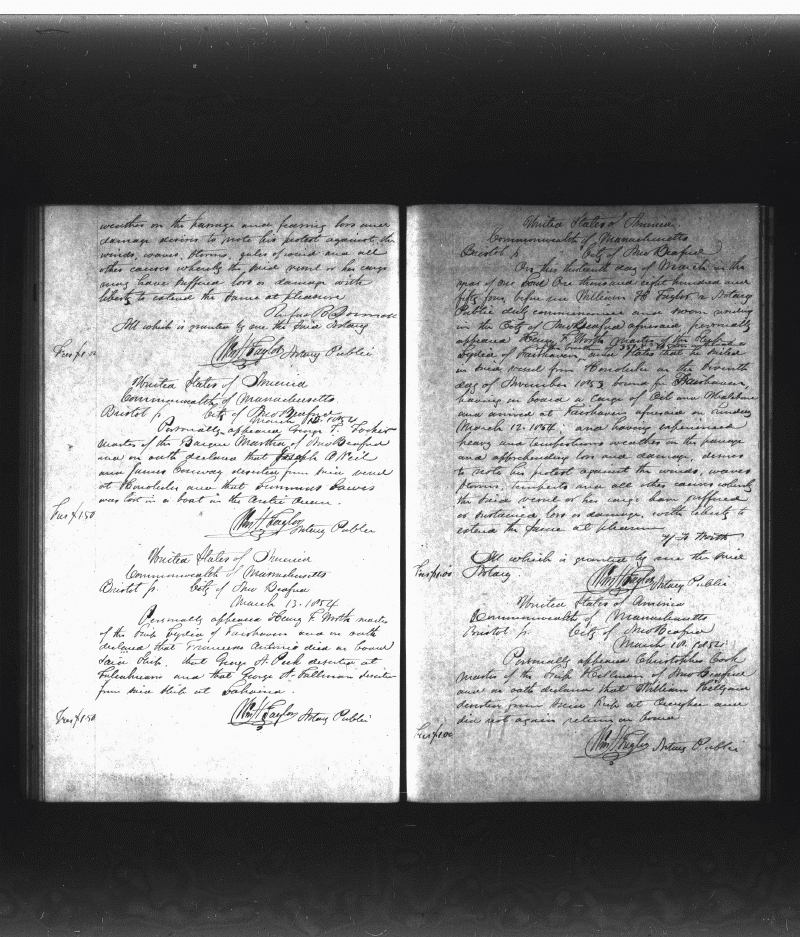 weather on the passage and fearing loss and
damage desires to note his protest against the
winds, waves, storms, gales of wind and all
other causes whereby the said vessel or her cargo
may have suffered loss or damage with
liberty to extend the same at pleasure
Rufus
All which is granted by me the said Notary
Wm H Taylor Notary Public
United States of America
Commonwealth of Massachusetts
Bristol ss. City of New Bedford
March 1854
Personally appeared George T.
master of the Barque Martha of New Bedford
and on oath declared that Joseph O Neil
and James Conway deserted from said vessel
at Honolulu and that
was lost in a boat in the Arctic Ocean.
Fees $1.50
Wm H Taylor Notary Public
United States of America
Commonwealth of Massachusetts
Bristol ss. City of New Bedford
March 13. 1854
Personally appeared Henry F. Worth master
of the Ship Lydia of Fairhaven and on oath
declared that Francisco Antonio died on board
said Ship, that George A. Peck deserted at
and that George H. deserted
from said Ship at Lahaina.
Fees $1.50
Wm H Taylor Notary Public
United States of America
Commonwealth of Massachusetts
Bristol ss City of New Bedford
On this day of March in the
year of our Lord One thousand eight hundred and
fifty four before me William H Taylor a Notary
Public duly commissioned and sworn residing
in the City of New Bedford aforesaid, personally
appeared Henry F. Worth Master of the Ship
Lydia of Fairhaven and states that he sailed
in said vessel from Honolulu on the Seventh
day of November 1853 bound for Fairhaven,
having on board a cargo of Oil and Whalebone
and arrived at Fairhaven aforesaid on Sunday
March 12. 1854. and having experienced
heavy and tempestuous weather on the passage
and apprehending loss and damage, desires
to note his protest against the winds, waves
storms, tempests and all other causes whereby
the said vessel or her cargo have suffered
or sustained loss or damage, with liberty to
extend the same at pleasure
H F Worth
All which is granted by me the said
Notary.
Wm H Taylor Notary Public
United States of America
Commonwealth of Massachusetts
Bristol ss. City of New Bedford
March 1854
Personally appeared Christopher Cook
master of the Ship of New Bedford
and on oath declared that William
deserted from said Ship at and
did not again return on board
Fees $1.00
Wm H Taylor Notary Public